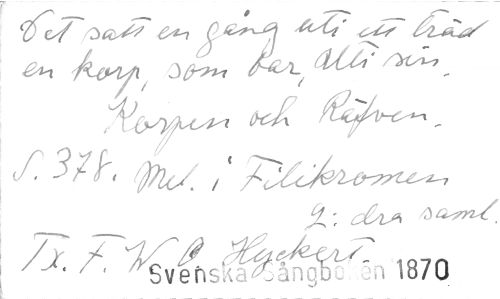 Det satt en gång uti ett träd
en korp, som bar, alti sin.
Korpen och Räfven.
S. 378. Mel. i Filikromen
2: dra saml.
Tx. F. W. O. Hyckert.
Svenska Sångboken 1870